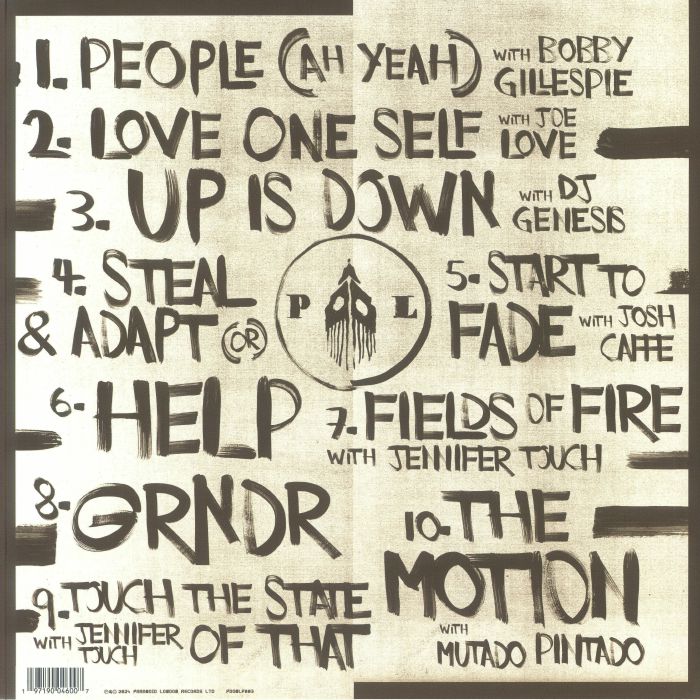 1. PEOPLE (AH YEAH) WITH BOBBY GILLESPIE
2. LOVE ONE SELF WITH JOE LOVE
3. UP IS DOWN WITH DJ GENESIS
4. STEAL & ADAPT (OR)
P L
5. START TO FADE WITH JOSH CAFFE
6. HELP
7. FIELDS OF FIRE
WITH JENNIFER TOUCH
8. GRNDR
9. TOUCH THE STATE OF THAT
WITH JENNIFER TOUCH
10. THE MOTION
WITH MUTADO PINTADO
1 97190 04600 7
℗&© 2024 PARANOID LONDON RECORDS LTD PDONLP003